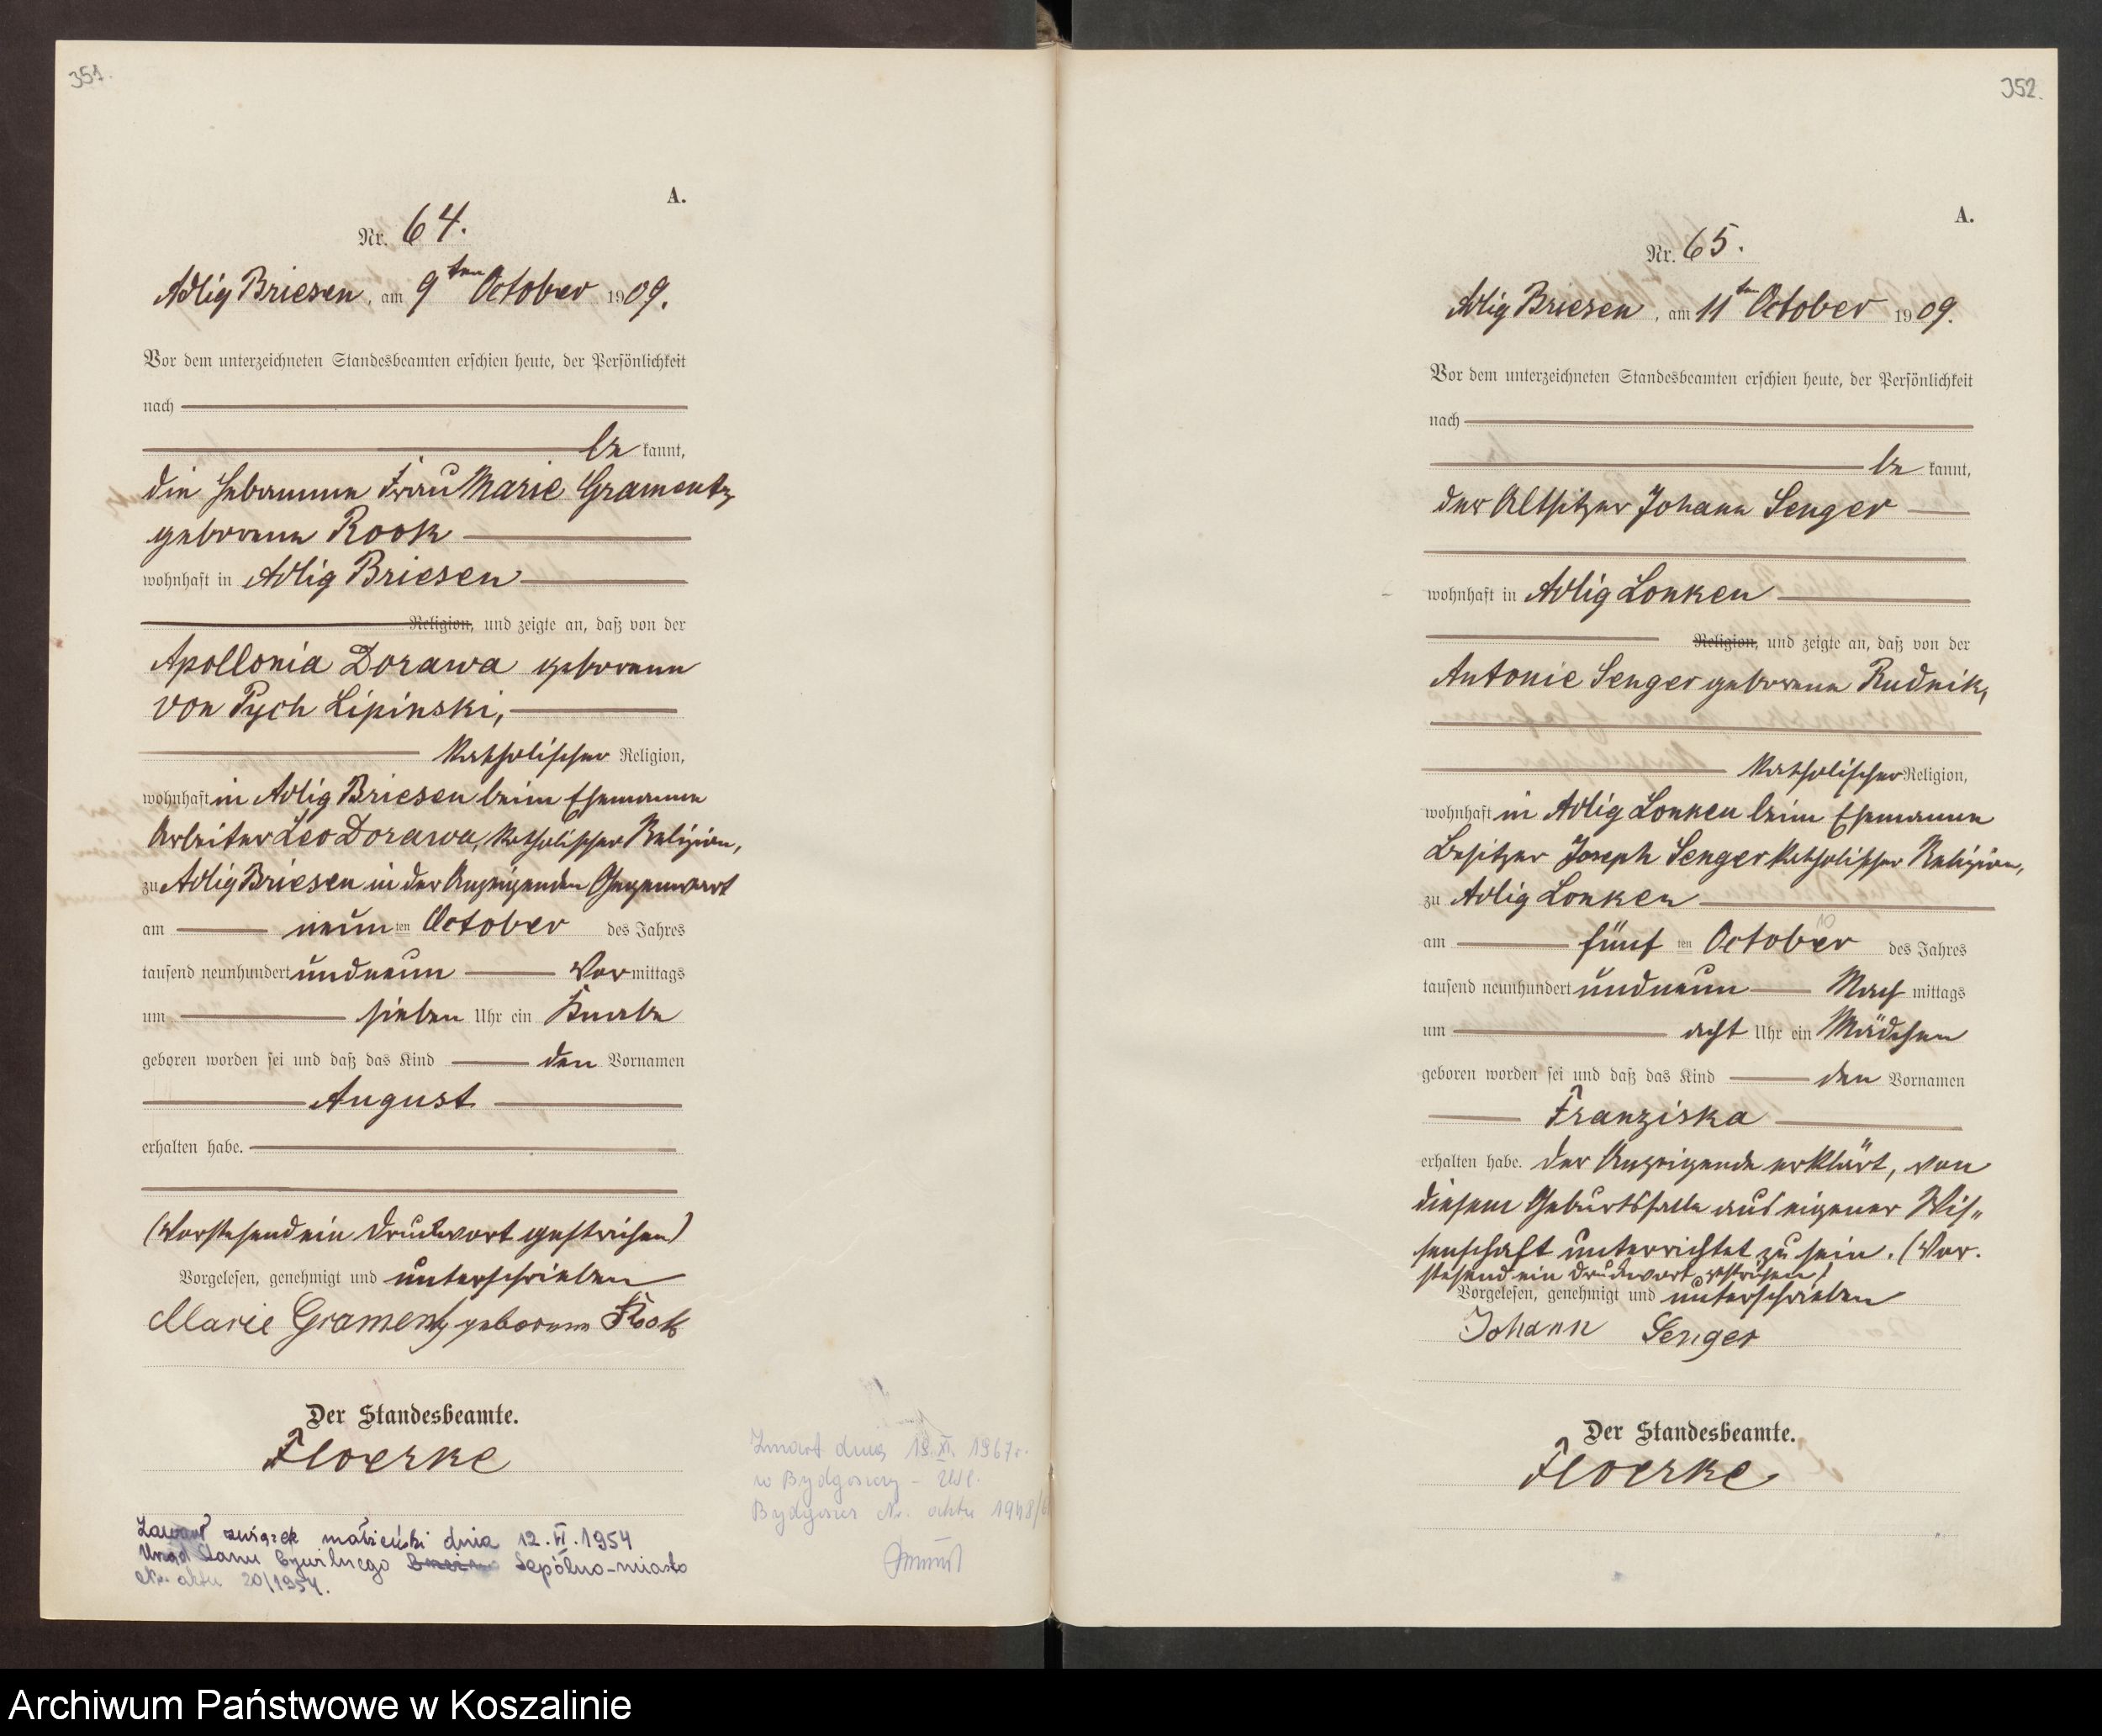 351.
A.
Nr. 64.
Adlig Briesen, am 9ten October 1909.
Vor dem unterzeichneten Standesbeamten erschien heute, der Persönlichkeit
nach
be kannt,
die Hebamme Frau Marie Gramentz
geborene Rook
wohnhaft in Adlig Briesen
Religion, und zeigte an, daß von der
Apollonia Dorawa geborenen
von Pych Lipinski,
katholischer Religion,
wohnhaft in Adlig Briesen beim Ehemanne
Arbeiter Leo Dorawa, katholischer Religion,
zu Adlig Briesen in der Anzeigenden Gegenwart
am neunten October des Jahres
tausend neunhundert und neun Vormittags
um sieben Uhr ein Knabe
geboren worden sei und daß das Kind den Vornamen
August
erhalten habe.
(Vorstehend ein Druckwort gestrichen)
Vorgelesen, genehmigt und unterschrieben
Marie Gramentz geborene Rook
Der Standesbeamte.
Floerke
Zawarł związek małżeński dnia 12.VI.1954
Urząd Stanu Cywilnego Sępólno-miasto
Nr. aktu 20/1954.
Zmarł dnia 19.XI.1967 r.
w Bydgoszczy - USC.
Bydgoszcz Nr. aktu 1948/6
352.
A.
Nr. 65.
Adlig Briesen, am 11ten October 1909.
Vor dem unterzeichneten Standesbeamten erschien heute, der Persönlichkeit
nach
be kannt,
der Altsitzer Johann Senger
wohnhaft in Adlig Lonken
Religion, und zeigte an, daß von der
Antonie Senger geborene Rudnik,
katholischer Religion,
wohnhaft in Adlig Lonken beim Ehemanne
Besitzer Joseph Senger katholischer Religion,
zu Adlig Lonken
10
am fünften October des Jahres
tausend neunhundert und neun Nachmittags
um acht Uhr ein Mädchen
geboren worden sei und daß das Kind den Vornamen
Franziska
erhalten habe. Der Anzeigende erklärt, von
diesem Geburtsfalle aus eigener Wis-
senschaft unterrichtet zu sein. (Vor-
stehend ein Druckwort gestrichen)
Vorgelesen, genehmigt und unterschrieben
Johann Senger
Der Standesbeamte.
Floerke
Archiwum Państwowe w Koszalinie